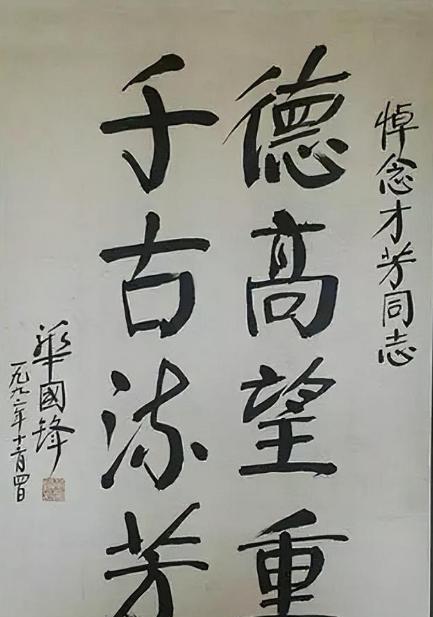 悼念才芳同志
德高望重
千古流芳
華國鋒
一九九二年十一月四日